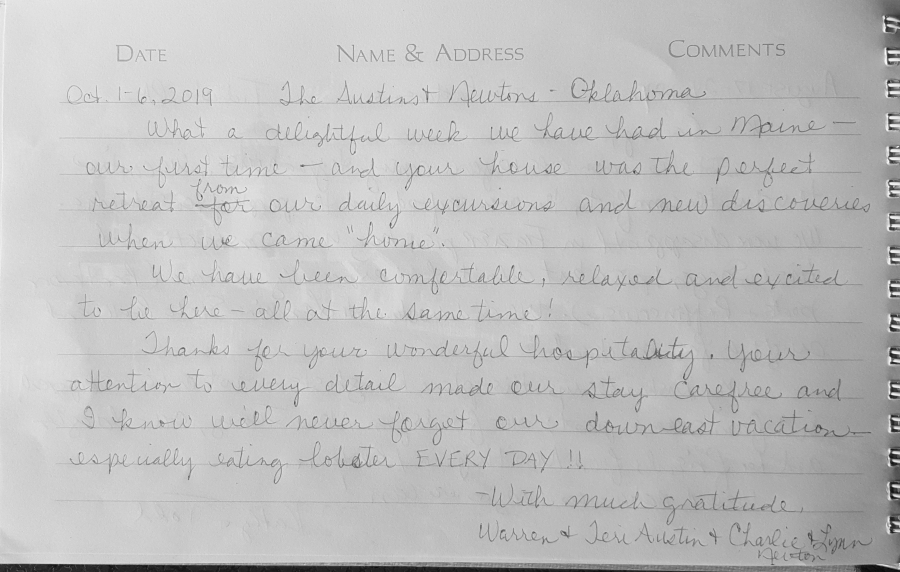 DATE NAME & ADDRESS COMMENTS
Oct. 1-6, 2019 The Austins & Newtons - Oklahoma
What a delightful week we have had in Maine -
our first time - and your house was the perfect
from
retreat for our daily excursions and new discoveries
when we came "home".
We have been comfortable, relaxed and excited
to be here - all at the same time!
Thanks for your wonderful hospitality. Your
attention to every detail made our stay carefree and
I know we'll never forget our down east vacation -
especially eating lobster EVERY DAY !!
- With much gratitude,
Warren & Teri Austin & Charlie & Lynn
Newton